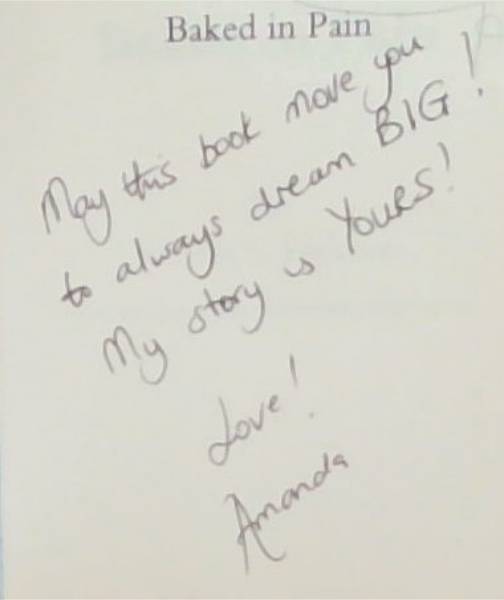 Baked in Pain
May this book move you
to always dream BIG!
My story is YOURS!
Love!
Amanda